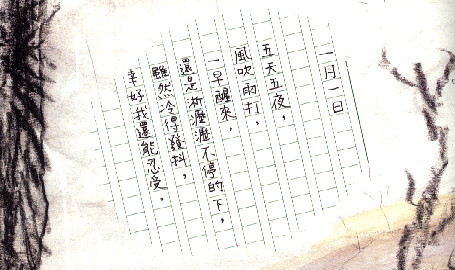 一月一日
五天五夜，
風吹雨打，
一早醒來，
還是淅瀝瀝不停的下，
雖然冷得發抖，
幸好我還能忍受。